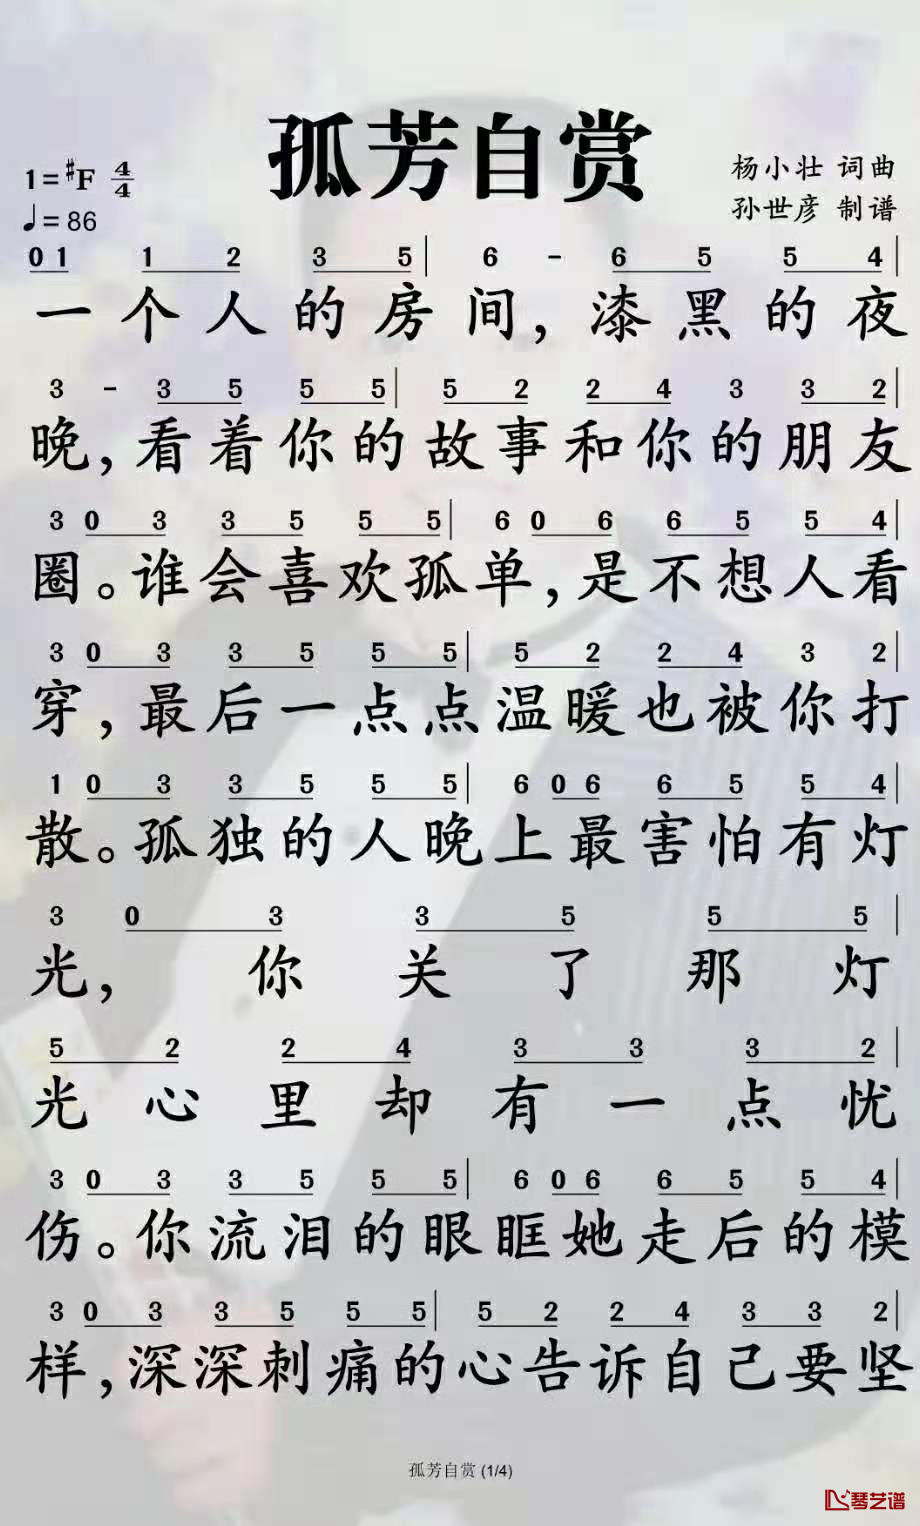 孤芳自赏
1=♯F 4/4
杨小壮 词曲
♩=86
孙世彦 制谱
0 1 1 2 3 5 | 6 - 6 5 5 4 |
一个人的房间，漆黑的夜
3 - 3 5 5 5 | 5 2 2 4 3 3 2 |
晚，看着你的故事和你的朋友
3 0 3 3 5 5 5 | 6 0 6 6 5 5 4 |
圈。谁会喜欢孤单，是不想人看
3 0 3 3 5 5 5 | 5 2 2 4 3 2 |
穿，最后一点点温暖也被你打
1 0 3 3 5 5 5 | 6 0 6 6 5 5 4 |
散。孤独的人晚上最害怕有灯
3 0 3 3 5 5 5 |
光，你关了那灯
5 2 2 4 3 3 3 2 |
光心里却有一点忧
3 0 3 3 5 5 5 | 6 0 6 6 5 5 4 |
伤。你流泪的眼眶她走后的模
3 0 3 3 5 5 5 | 5 2 2 4 3 3 2 |
样，深深刺痛的心告诉自己要坚
孤芳自赏 (1/4)
琴艺谱